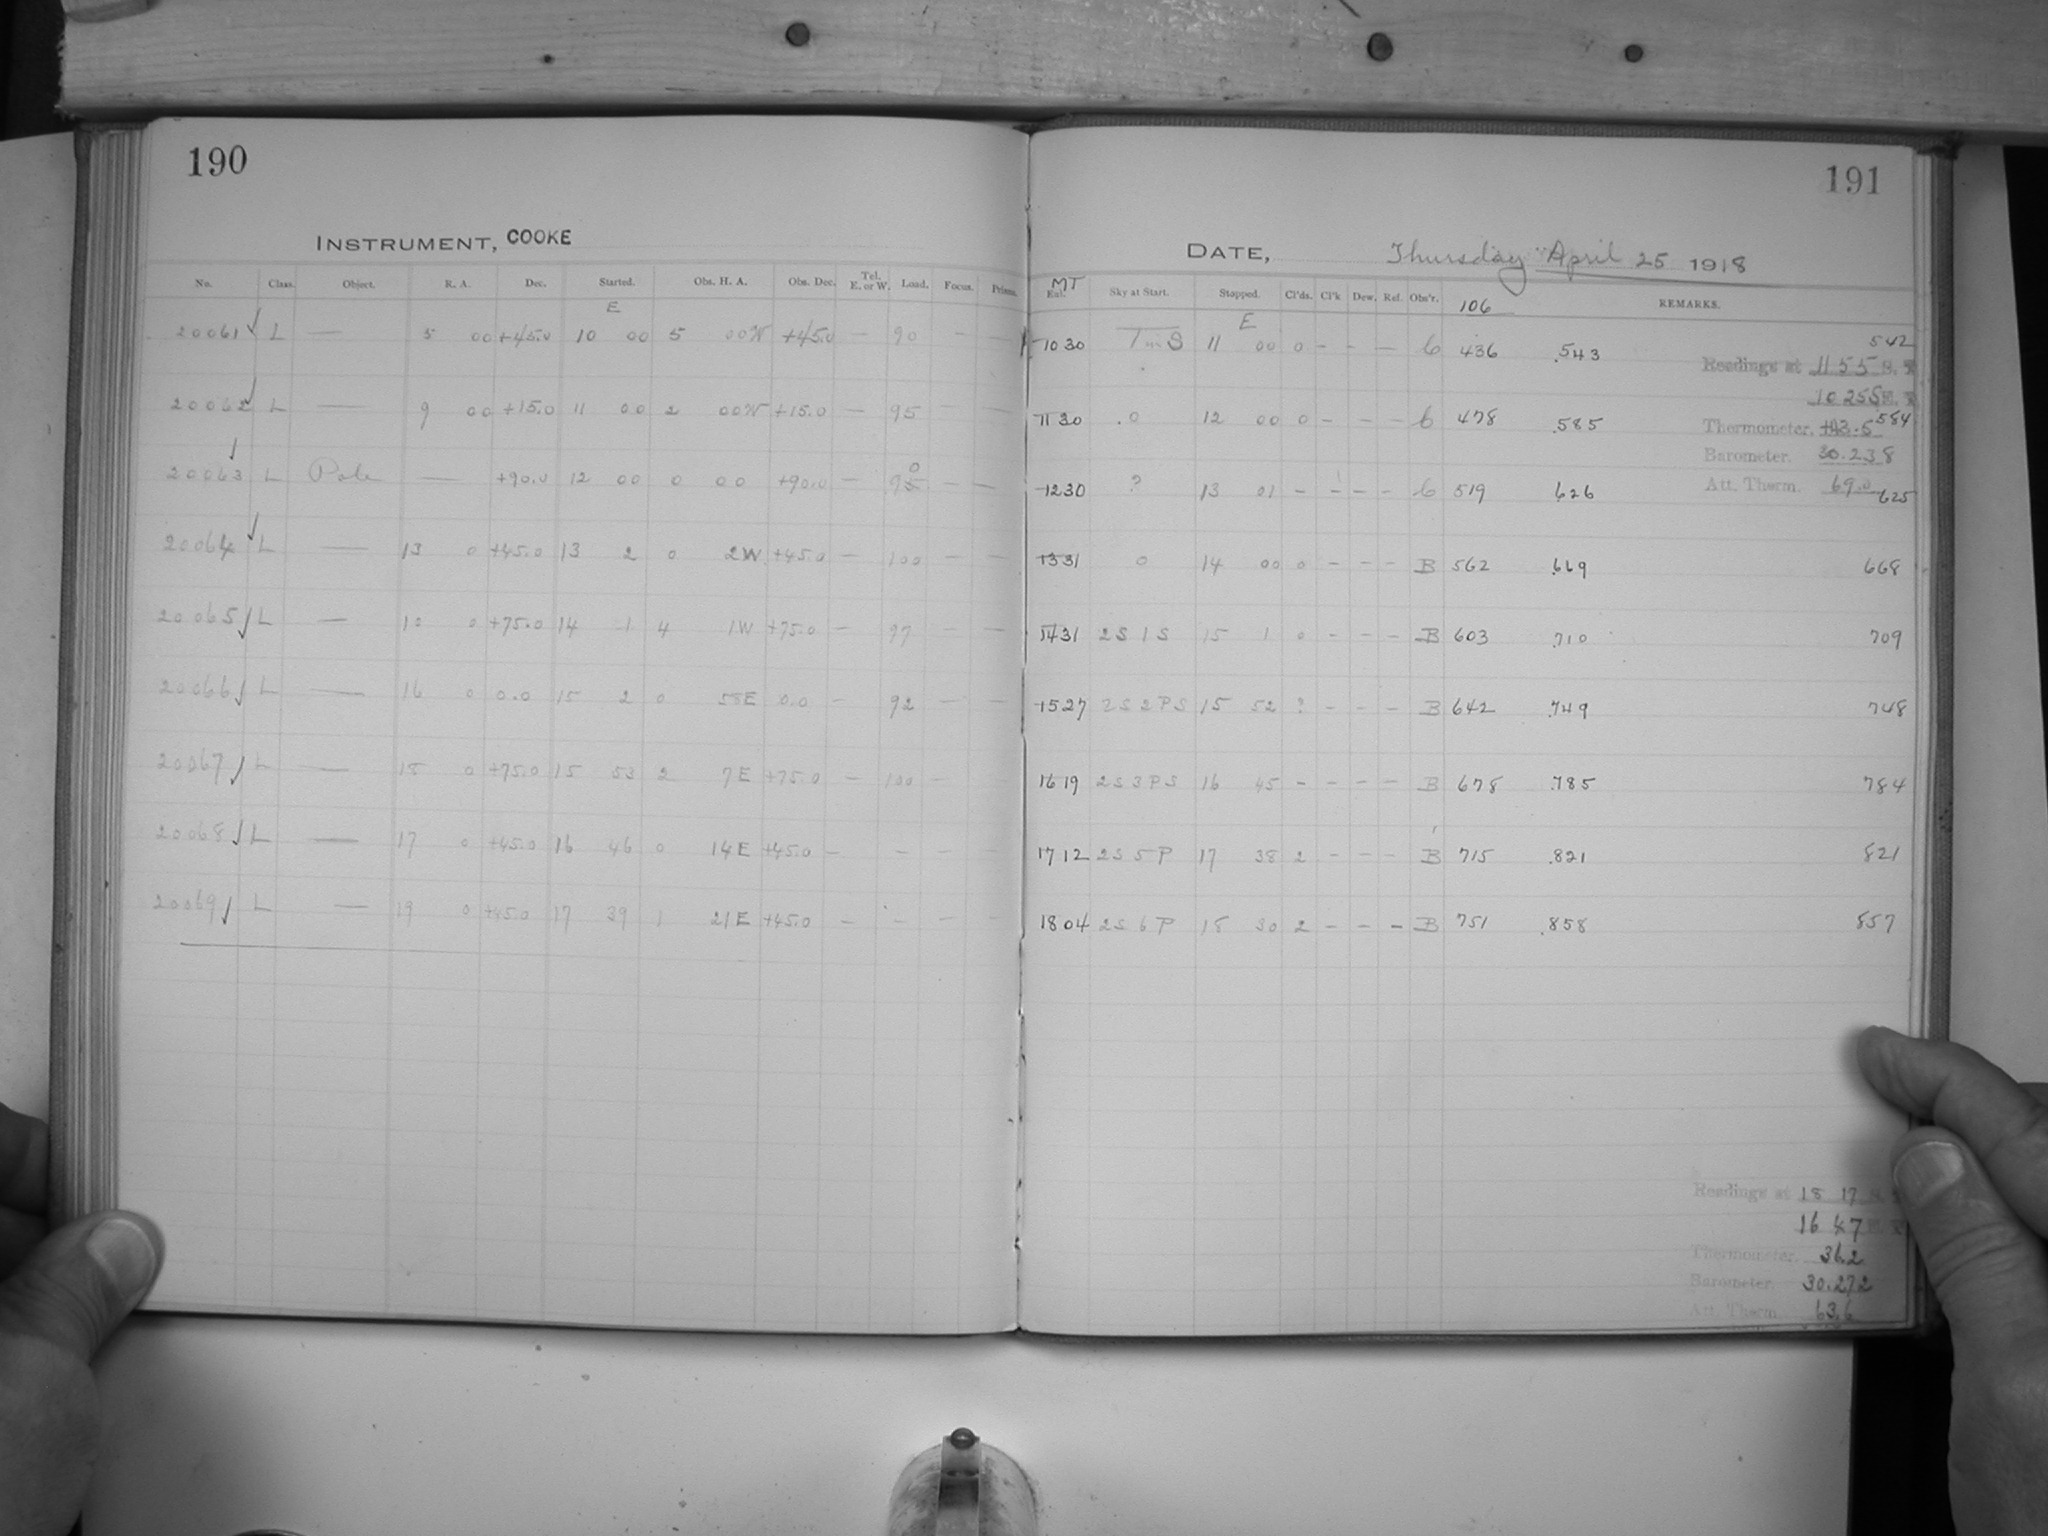 190
INSTRUMENT, COOKE
No. Class. Object. R. A. Dec. Started. Obs. H. A. Obs. Dec. Tel. E. or W. Load. Focus. Prisms.
E
20061 ✓ L — 5 00 +45.0 10 00 5 00W +45.0 — 90 — —
20062 ✓ L — 9 00 +15.0 11 00 2 00W +15.0 — 95 — —
20063 ✓ L Pole — +90.0 12 00 0 00 +90.0 — 95 0 — —
20064 ✓ L — 13 0 +45.0 13 2 0 2W +45.0 — 100 — —
20065 ✓ L — 10 0 +75.0 14 1 4 1W +75.0 — 97 — —
20066 ✓ L — 16 0 0.0 15 2 0 58E 0.0 — 92 — —
20067 ✓ L — 18 0 +75.0 15 53 2 7E +75.0 — 100 —
20068 ✓ L — 17 0 +45.0 16 46 0 14E +45.0 — — — —
20069 ✓ L — 19 0 +45.0 17 39 1 21E +45.0 — — — —
191
DATE, Thursday April 25 1918
MT
Ent. Sky at Start. Stopped. Cl'ds. Cl'k Dew. Ref. Obs'r. 106 REMARKS.
E
1030 11 00 0 – – — 6 436 .543 542
Readings at 11 55 S. T
10 255 E. T
1130 0 12 00 0 – – – 6 478 .585 584
Thermometer. +43.5
Barometer. 30.238
1230 ? 13 01 – – – – 6 519 626 625
Att. Therm. 69.0
1331 0 14 00 0 – – – B 562 .669 668
1431 2S 1S 15 1 0 – – – B 603 .710 709
1527 2S 2PS 15 52 ? – – – B 642 .749 748
1619 2S 3PS 16 45 – – – – B 678 .785 784
1712 2S 5P 17 38 2 – – – B 715 .821 821
1804 2S 6P 18 30 2 – – – B 751 .858 857
Readings at 18 17 S.
16 47
Thermometer. 36.2
Barometer. 30.272
Att. Therm. 63.6